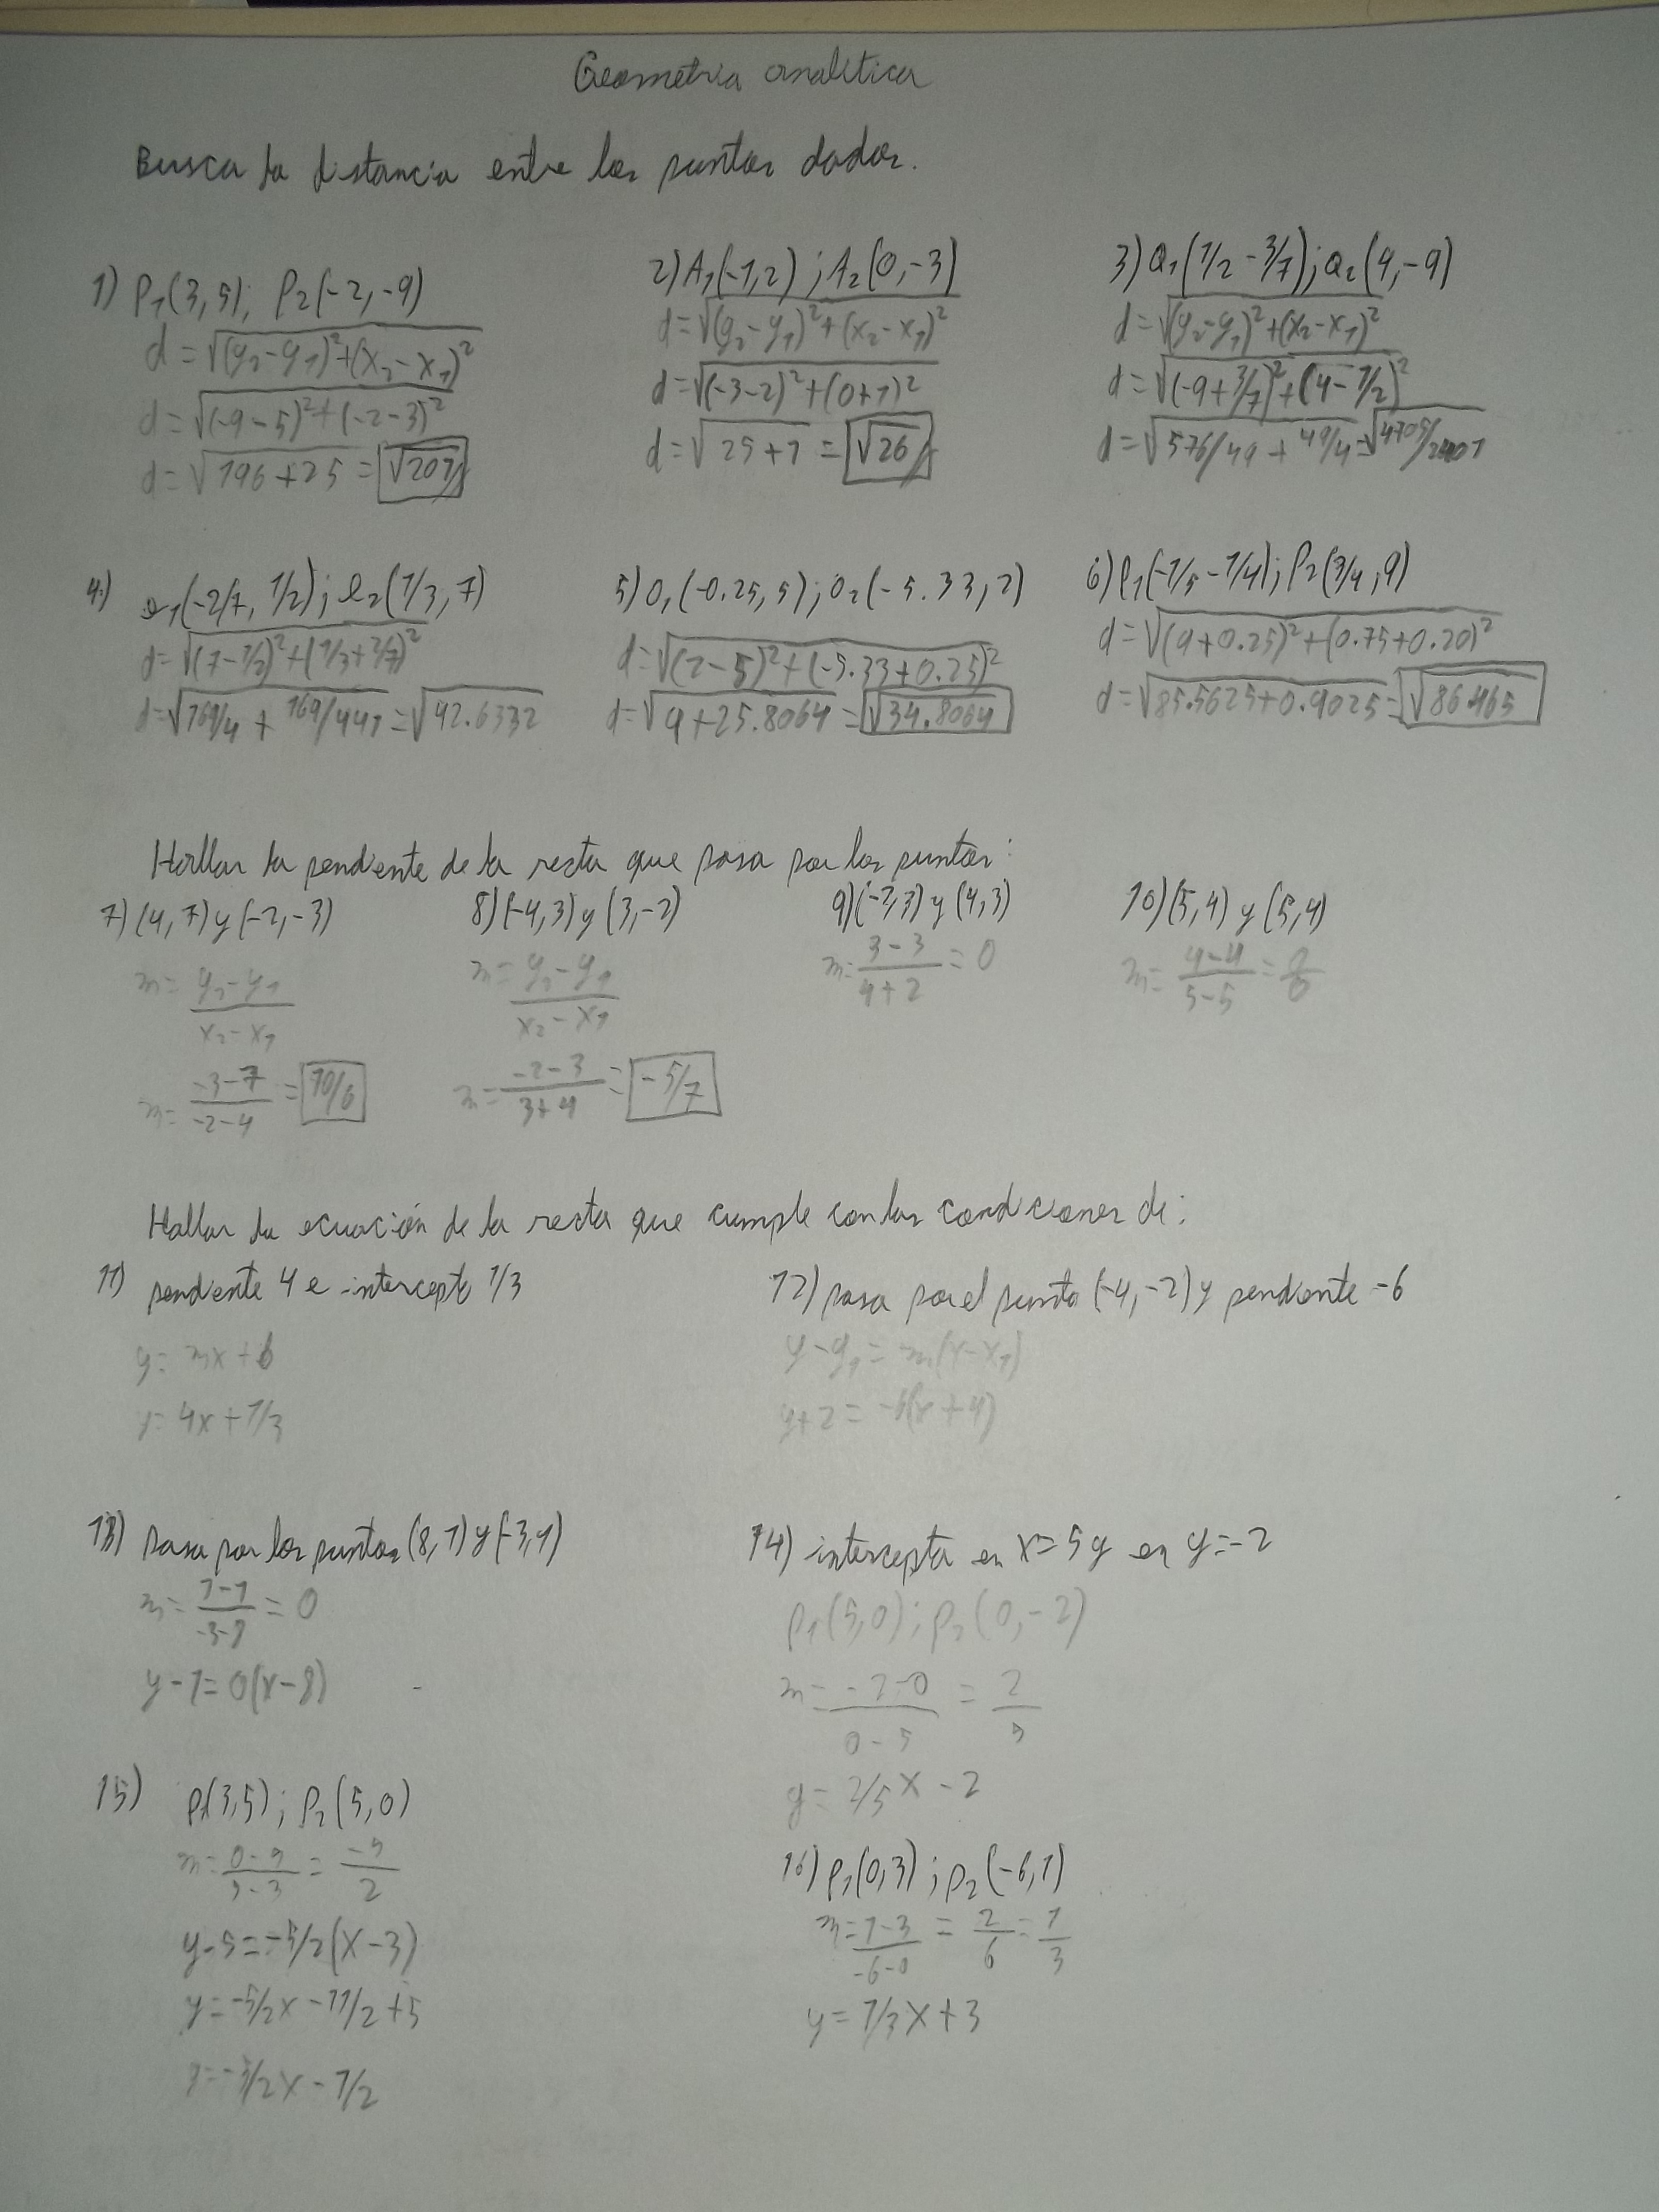 Geometria analitica
Busca la distancia entre los puntos dados.
1) P₁(3,5); P₂(-2,-9)
d=√(y₂-y₁)²+(x₂-x₁)²
d=√(-9-5)²+(-2-3)²
d=√196+25=√201
2) A₁(-1,2); A₂(0,-3)
d=√(y₂-y₁)²+(x₂-x₁)²
d=√(-3-2)²+(0+1)²
d=√25+1=√26
3) Q₁(1/2-3/7); Q₂(4,-9)
d=√(y₂-y₁)²+(x₂-x₁)²
d=√(-9+3/7)²+(4-1/2)²
d=√576/49+49/4=√4705/2401
4.) e₁(-2/7, 1/2); e₂(1/3, 7)
d=√(7-1/2)²+(1/3+2/7)²
d=√169/4+169/441=√42.6332
5) O₁(-0.25,5); O₂(-5.33,2)
d=√(2-5)²+(-5.33+0.25)²
d=√9+25.8064=√34.8064
6) P₁(-1/5-1/4); P₂(3/4,9)
d=√(9+0.25)²+(0.75+0.20)²
d=√85.5625+0.9025=√86.465
Hallar la pendiente de la recta que pasa por los puntos:
7) (4,7) y (-2,-3)
m=y₂-y₁/x₂-x₁
m=-3-7/-2-4=10/6
8) (-4,3) y (3,-2)
m=y₂-y₁/x₂-x₁
m=-2-3/3+4=-5/7
9) (-2,3) y (4,3)
m=3-3/4+2=0
10) (5,4) y (5,4)
m=4-4/5-5=0/0
Hallar la ecuación de la recta que cumple con las condiciones de:
11) pendiente 4 e intercepto 1/3
y=mx+b
y=4x+1/3
12) pasa por el punto (-4,-2) y pendiente -6
y-y₁=m(x-x₁)
y+2=-6(x+4)
13) pasa por los puntos (8,1) y (-3,1)
m=1-1/-3-8=0
y-1=0(x-8)
14) intercepta en x=5 y en y=-2
P₁(5,0); P₂(0,-2)
m=-2-0/0-5=2/5
y=2/5x-2
15) P₁(3,5); P₂(5,0)
m=0-5/5-3=-5/2
y-5=-5/2(x-3)
y=-5/2x-11/2+5
y=-5/2x-1/2
16) P₁(0,3); P₂(-6,1)
m=1-3/-6-0=2/6=1/3
y=1/3x+3